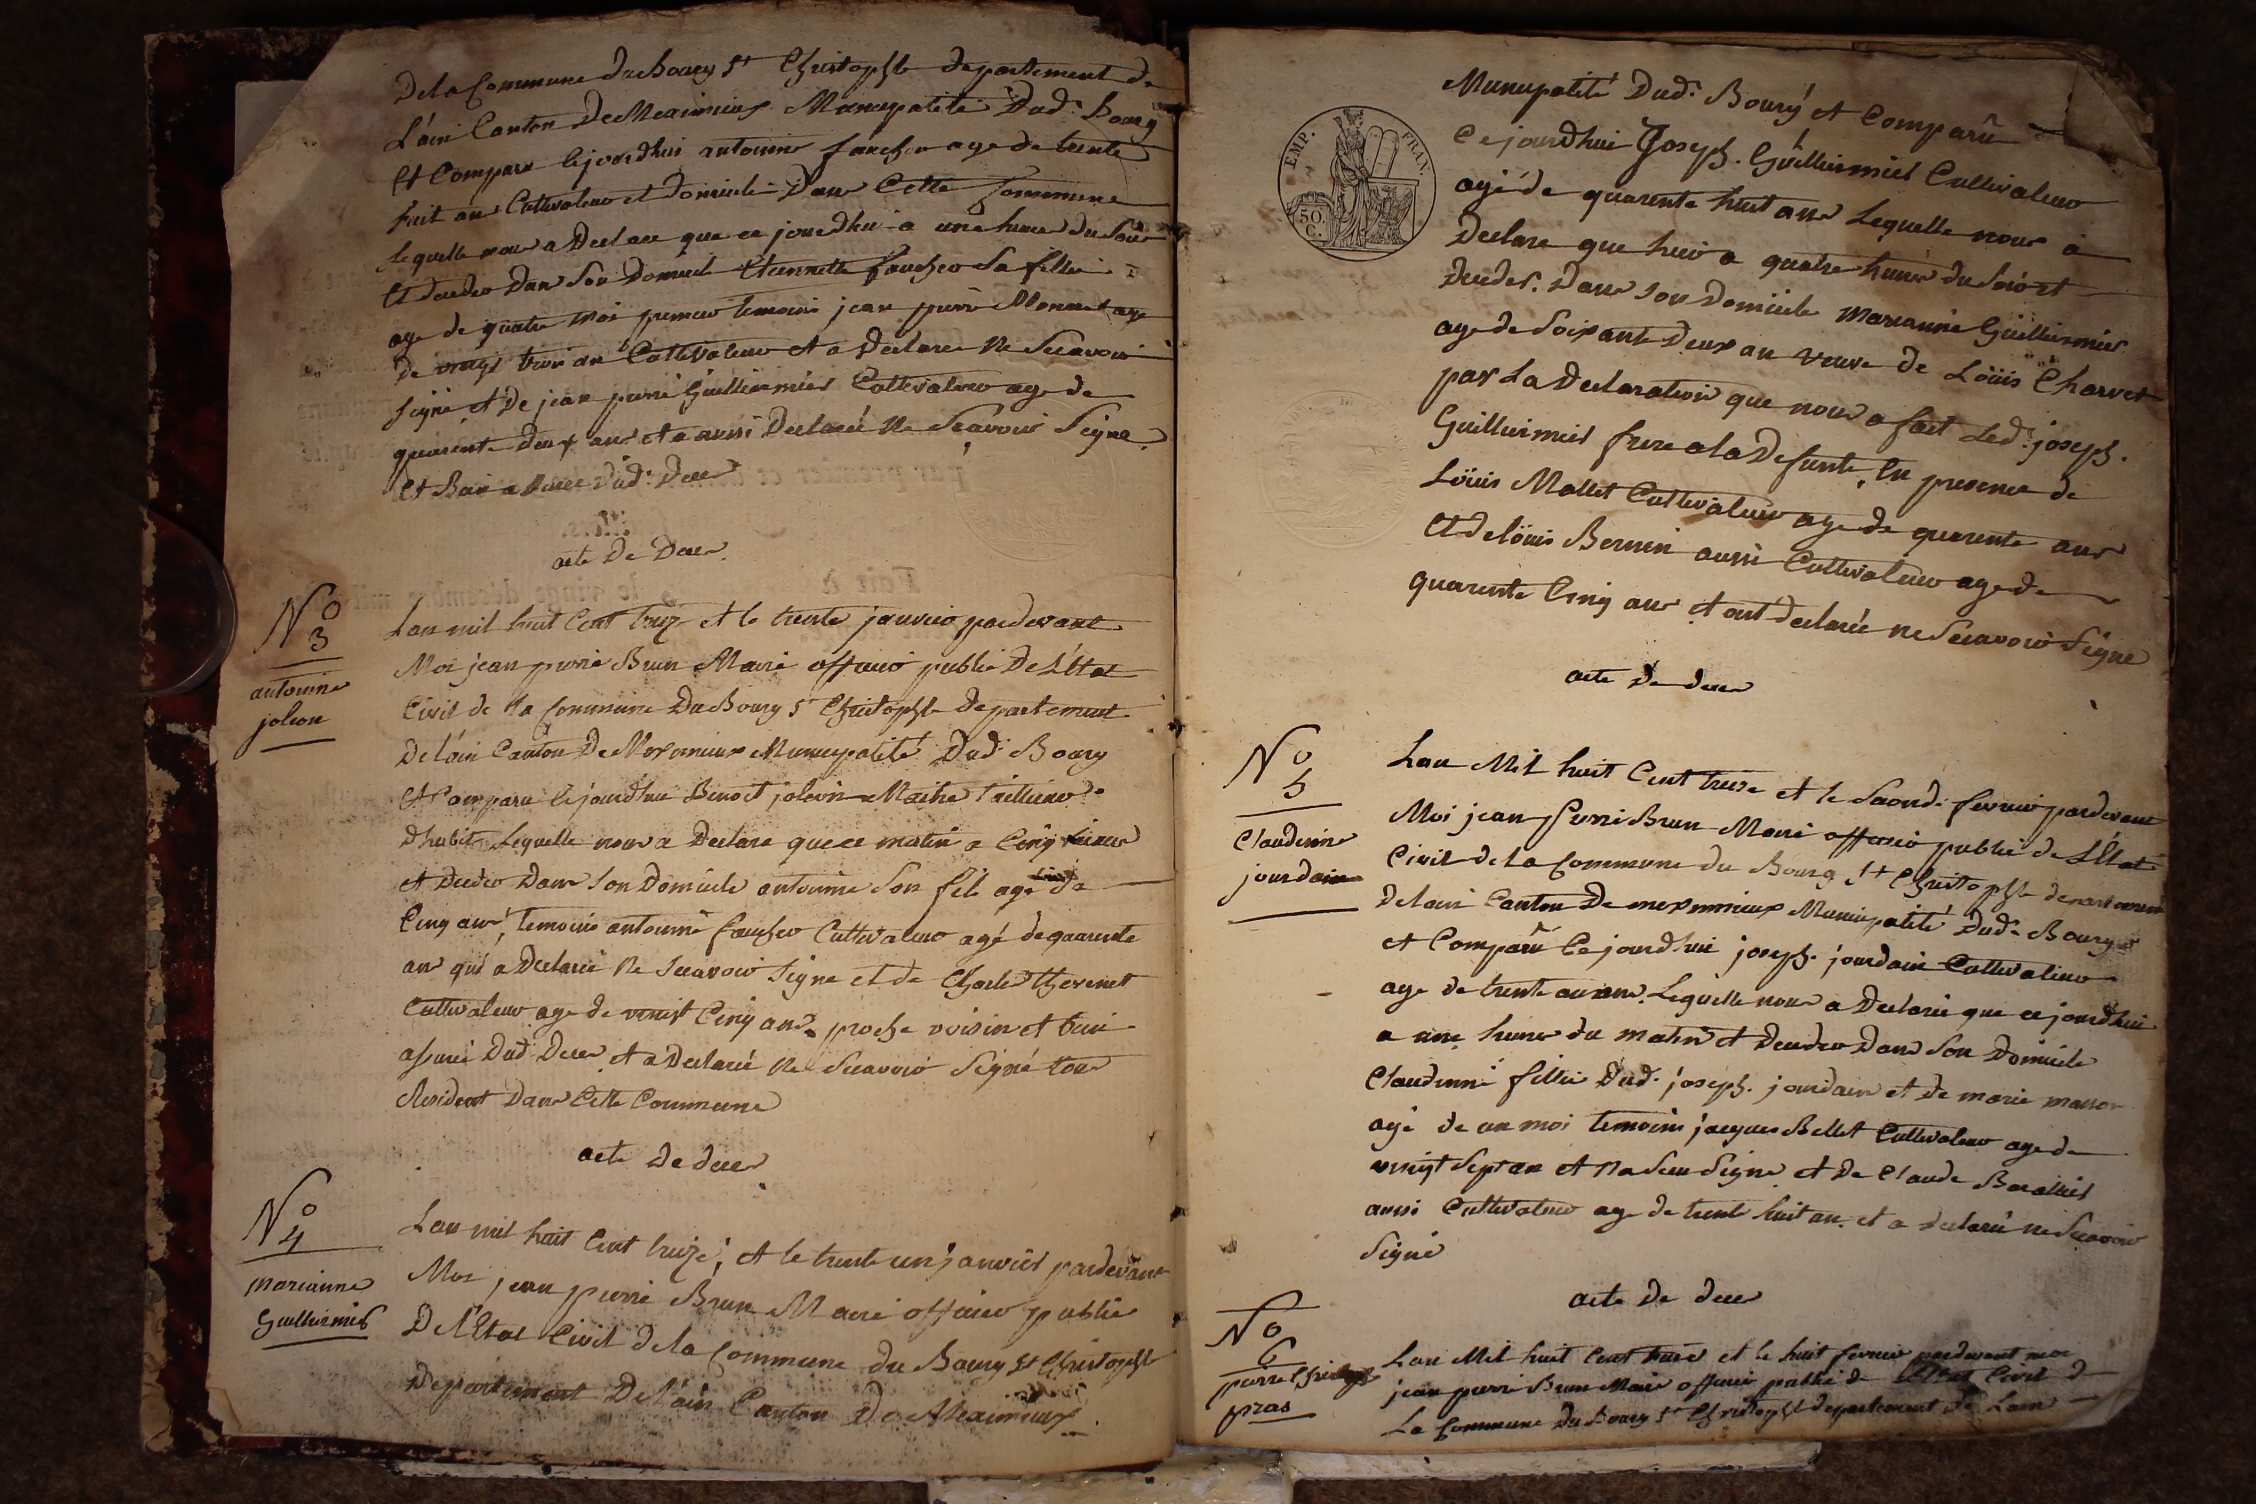 De la Commune Du Bourg St Christophle departement de
L'ain Canton De Meximieux Municipalité Dud. Bourg
Et Comparu Cejourdhui antoinne faucher age de trente
huit ans Cultivateur et Domicilié Dans Cette Commune
Lequelle nous a Declare que ce jourdhui a une heure du Soir
Et decedee Dans Son Domicile Etiennette faucher Sa fillie
age de quatre moi premier temoins jean pierre Monnet age
de vingt trois an Cultivateur et a Declaree Ne Scavoir
signé et De jean pierre Guilliermier Cultivateur age de
quarente Deux ans et a aussi Declareé Ne Scavoir Signe
Et Dud. Deces
acte De Deces
No 3
antoinne
joleon
Lan mil huit Cent treize et le trente janvier pardevant
Moi jean pierre Brun Maire officier public De L'Etat
Civil de la Commune Du Bourg St Christophle Departement
De l'ain Canton De Meximieux Municipalité Dud. Bourg
Et Comparu Cejourdhui Benoit joleon Maitre taillieur
Dhabit Lequelle nous a Declare que ce matin a Cinq heures
et Decedeo Dans Son Domicile antoinne Son fils age de
Cinq ans, temoins antoinne faucher Cultivateur agé de quarente
an qui a Declareé Ne Scavoir Signe et de Charle thevenet
Cultivateur age de vinist Cinq ans proche voisin et
Dud. Deces et a Declareé Ne Scavoir Signé tous
Resident Dans Cette Commune
acte De deces
No 4
marianne
Guilliermier
Lan mil huit Cent treize, et le trente un janvier pardevant
Moi jean pierre Brun Maire officier public
De l'Etat Civil de la Commune du Bourg St Christophle
Departement De l'ain Canton De Meximieux.
EMP. FRAN.
50 C.
Municipalité Dud. Bourg et Comparû
Cejourdhui Joseph Guilliermier Cultivateur
agé de quarente huit ans Lequelle nous à
Declare que hier a quatre heures du Soir et
Decedes Dans Son Domicile Marianne Guilliermier
age de Soixante Deux an veuve de Loüis Charvet
par La Declaration que nous a fait Led. joseph
Guilliermier frere a la Defunte, En presence de
Loüis Mallet Cultivateur age de quarente ans
Et de loüis Bernin aussi Cultivateur age de
quarente Cinq ans et ont declareé ne Scavoir Signe
acte De deces
No 5
Claudinne
jourdain
Lan Mil huit Cent treize et le Second fevrier pardevant
Moi jean pierre Brun Maire officier public de L'Etat
Civil de la Commune du Bourg St Christophle departement
De lain Canton De meximieux Municipalité Dud. Bourg
et Comparû Cejourdhui joseph jourdain Cultivateur
age de trente ans Lequelle nous a Declareé que ce jourdhui
a une heure du matin et Decedeo Dans Son Domicile
Claudinne fillie Dud. joseph jourdain et De marie masson
agé de un moi temoins jacques Bellet Cultivateur age de
vingt Sept an et Na Sceu Signe et De Claude
aussi Cultivateur age de trente huit an et a declareé ne Scavoir
Signé
acte De deces
No 6
pierre
pras
Lan Mil huit Cent treize et le huit fevrier pardevant moi
jean pierre Brun Maire officier public de L'Etat Civil D
La Commune Du Bourg St Christophle departement De Lain